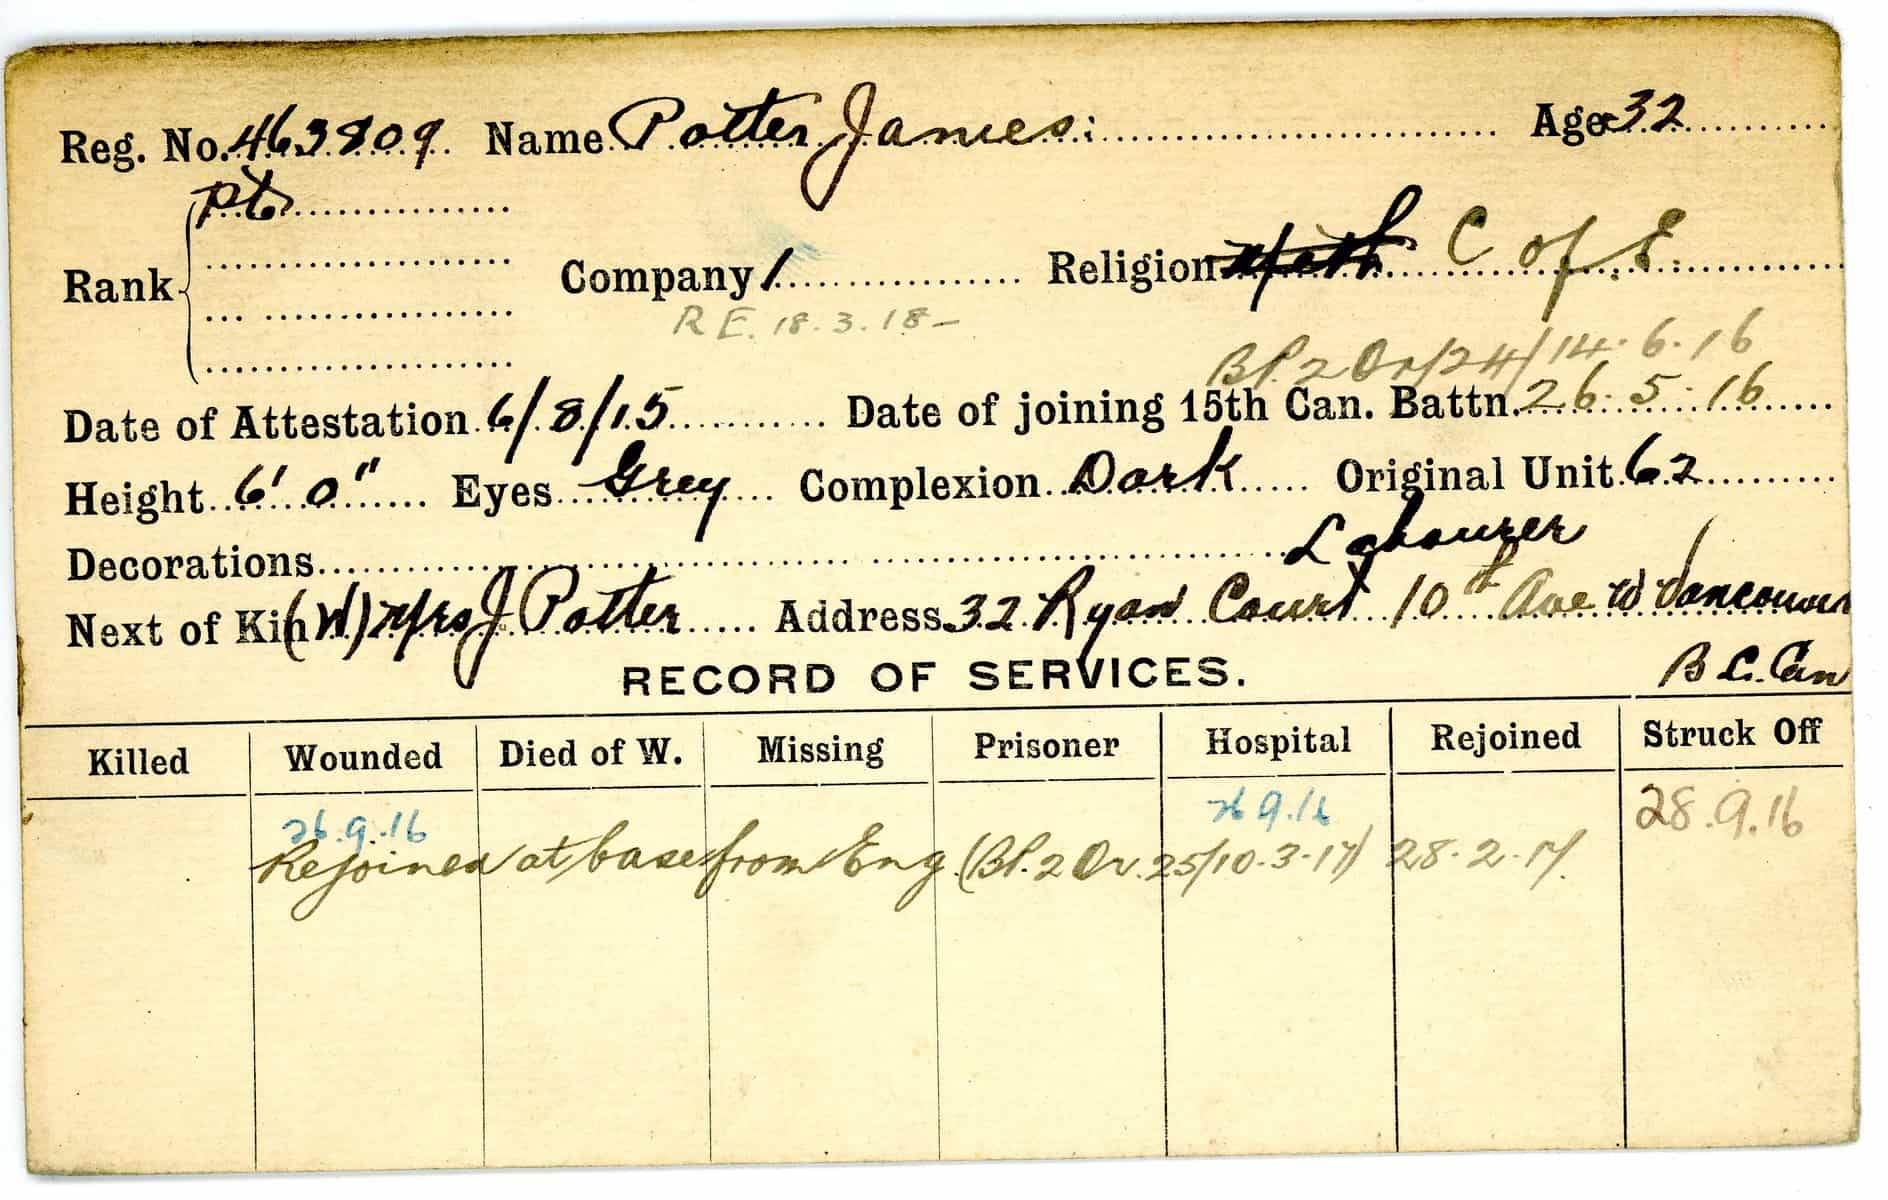 Reg. No. 463809. Name Potter James: Age 32
Pte
Rank
Company 1 Religion Meth C of E.
R E. 18.3.18-
Pt. 2 Or/24/14.6.16
Date of Attestation 6/8/15 Date of joining 15th Can. Battn. 26.5.16
Height 6' 0" Eyes Grey Complexion Dark Original Unit 62
Decorations Labourer
Next of Kin (W) Mrs J Potter Address 32 Ryan Court 10th Ave W Vancouver
B C. Can
RECORD OF SERVICES.
Killed Wounded Died of W. Missing Prisoner Hospital Rejoined Struck Off
26.9.16 26 9.16 28.9.16
Rejoined at base from Eng. (Pt. 2 Or. 25/10-3-17) 28-2-17.